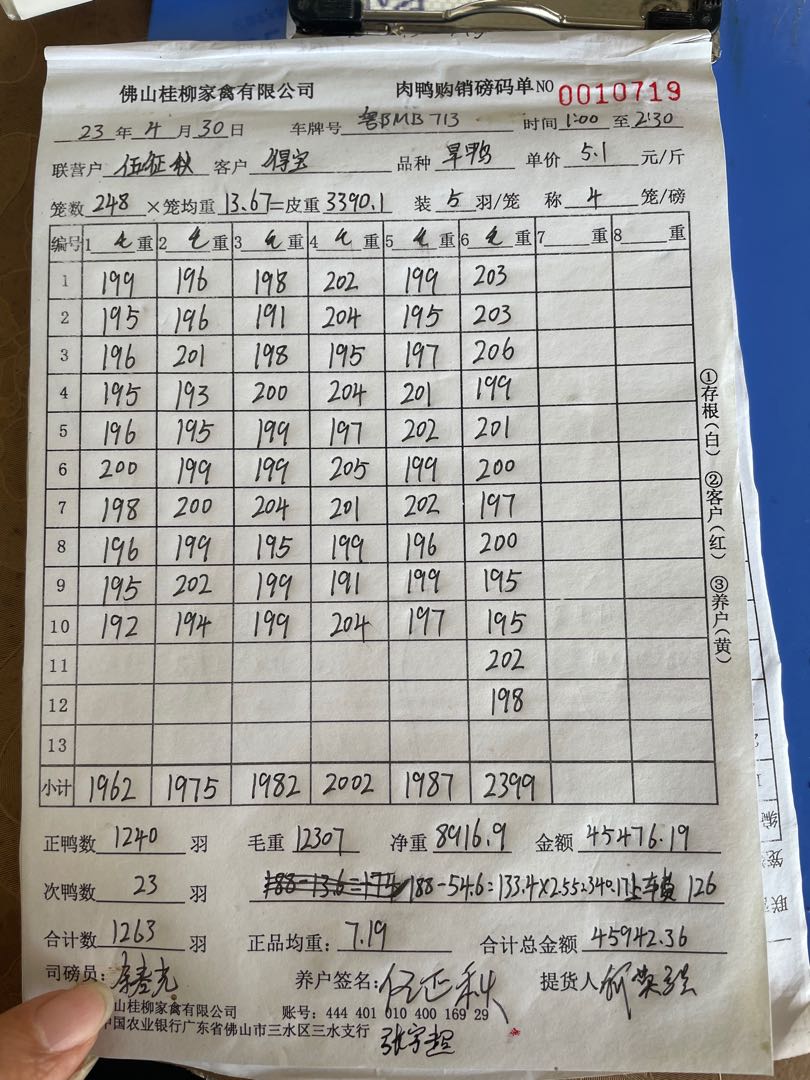 佛山桂柳家禽有限公司 肉鸭购销磅码单NO 0010719
23年4月30日 车牌号 粤BMB713 时间1:00至2:30
联营户 伍征秋 客户 得宝 品种 旱鸭 单价 5.1 元/斤
笼数 248 ×笼均重 13.67=皮重 3390.1 装 5 羽/笼 称 4 笼/磅
编号 1 毛 重 2 毛 重 3 毛 重 4 毛 重 5 毛 重 6 毛 重 7 重 8 重
1 199 196 198 202 199 203
2 195 196 191 204 195 203
3 196 201 198 195 197 206
4 195 193 200 204 201 199
5 196 195 199 197 202 201
6 200 199 199 205 199 200
7 198 200 204 201 202 197
8 196 199 195 199 196 200
9 195 202 199 191 199 195
10 192 194 199 204 197 195
11 202
12 198
13
小计 1962 1975 1982 2002 1987 2399
正鸭数 1240 羽 毛重 12307 净重 8916.9 金额 45476.19
次鸭数 23 羽 188-54.6=133.4×2.55=340.17 上车费 126
合计数 1263 羽 正品均重: 7.19 合计总金额 45942.36
司磅员: 养户签名: 伍征秋 提货人
山桂柳家禽有限公司 账号: 444 401 010 400 169 29
中国农业银行广东省佛山市三水区三水支行 张宇超
①存根(白) ②客户(红) ③养户(黄)